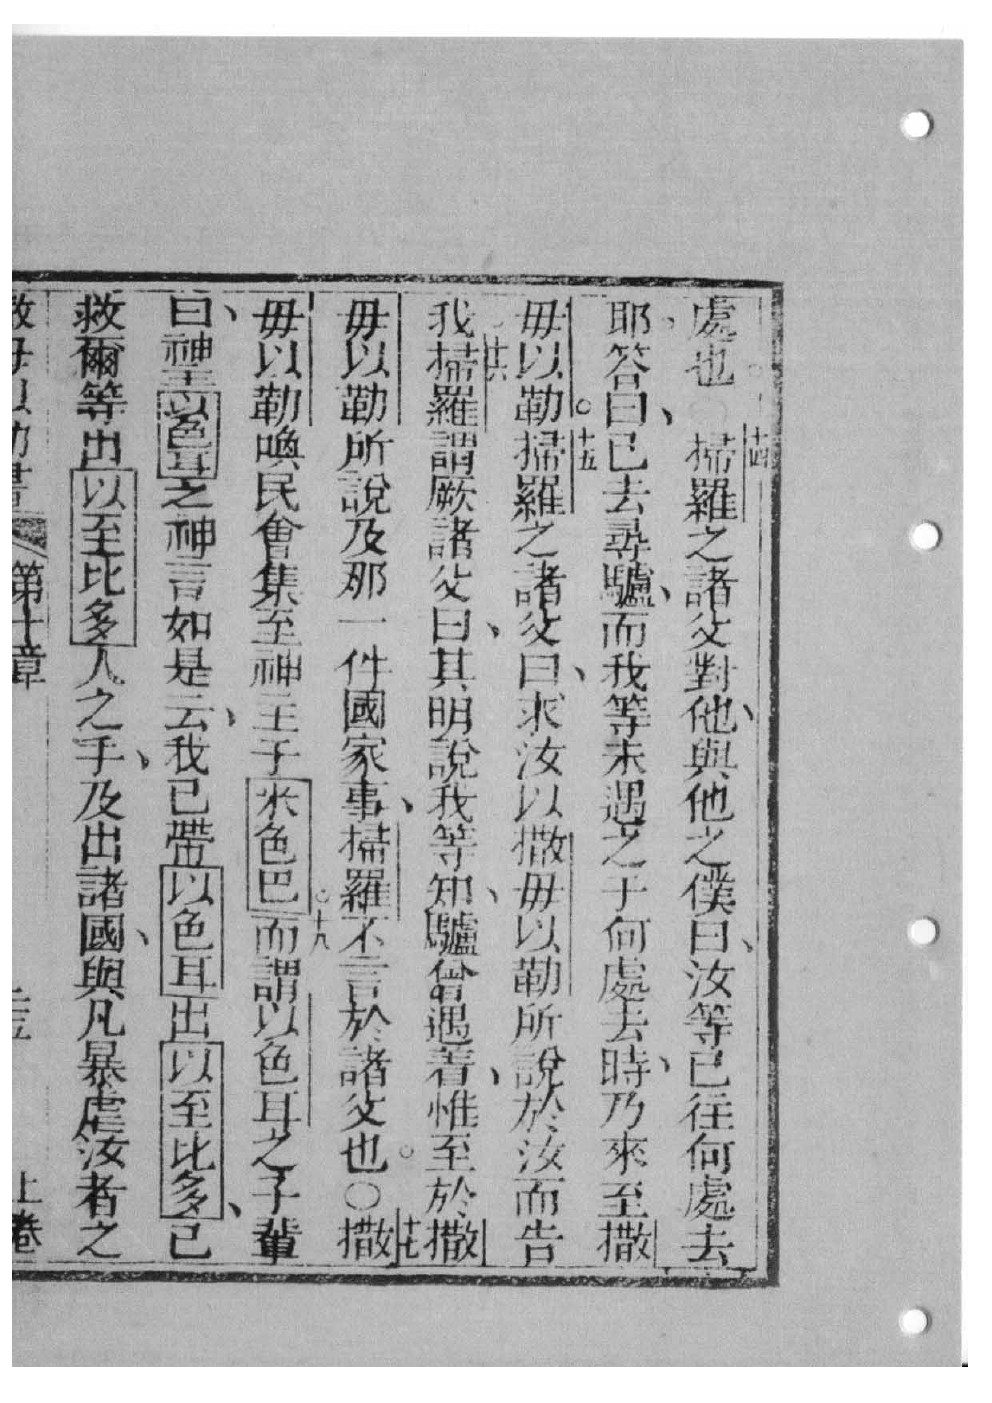 處也。十四掃羅之諸父對他、與他之僕曰、汝等已往何處去
耶。答曰、已去尋驢、而我等未遇之于何處去時、乃來至撒
毋以勒。十五掃羅之諸父曰、求汝以撒毋以勒所說於汝而告
我。十六掃羅謂厥諸父曰、其明說我等知、驢曾遇着、惟至於撒
毋以勒所說及那一件國家事、掃羅不言於諸父也。〇十七撒
毋以勒喚民會集至神王于米色巴。十九而謂以色耳之子輩
曰、神王以色耳之神言如是云、我已帶以色耳出以至比多、已
救爾等出以至比多人之手、及出諸國、與凡暴虐汝者之
第十章 上卷